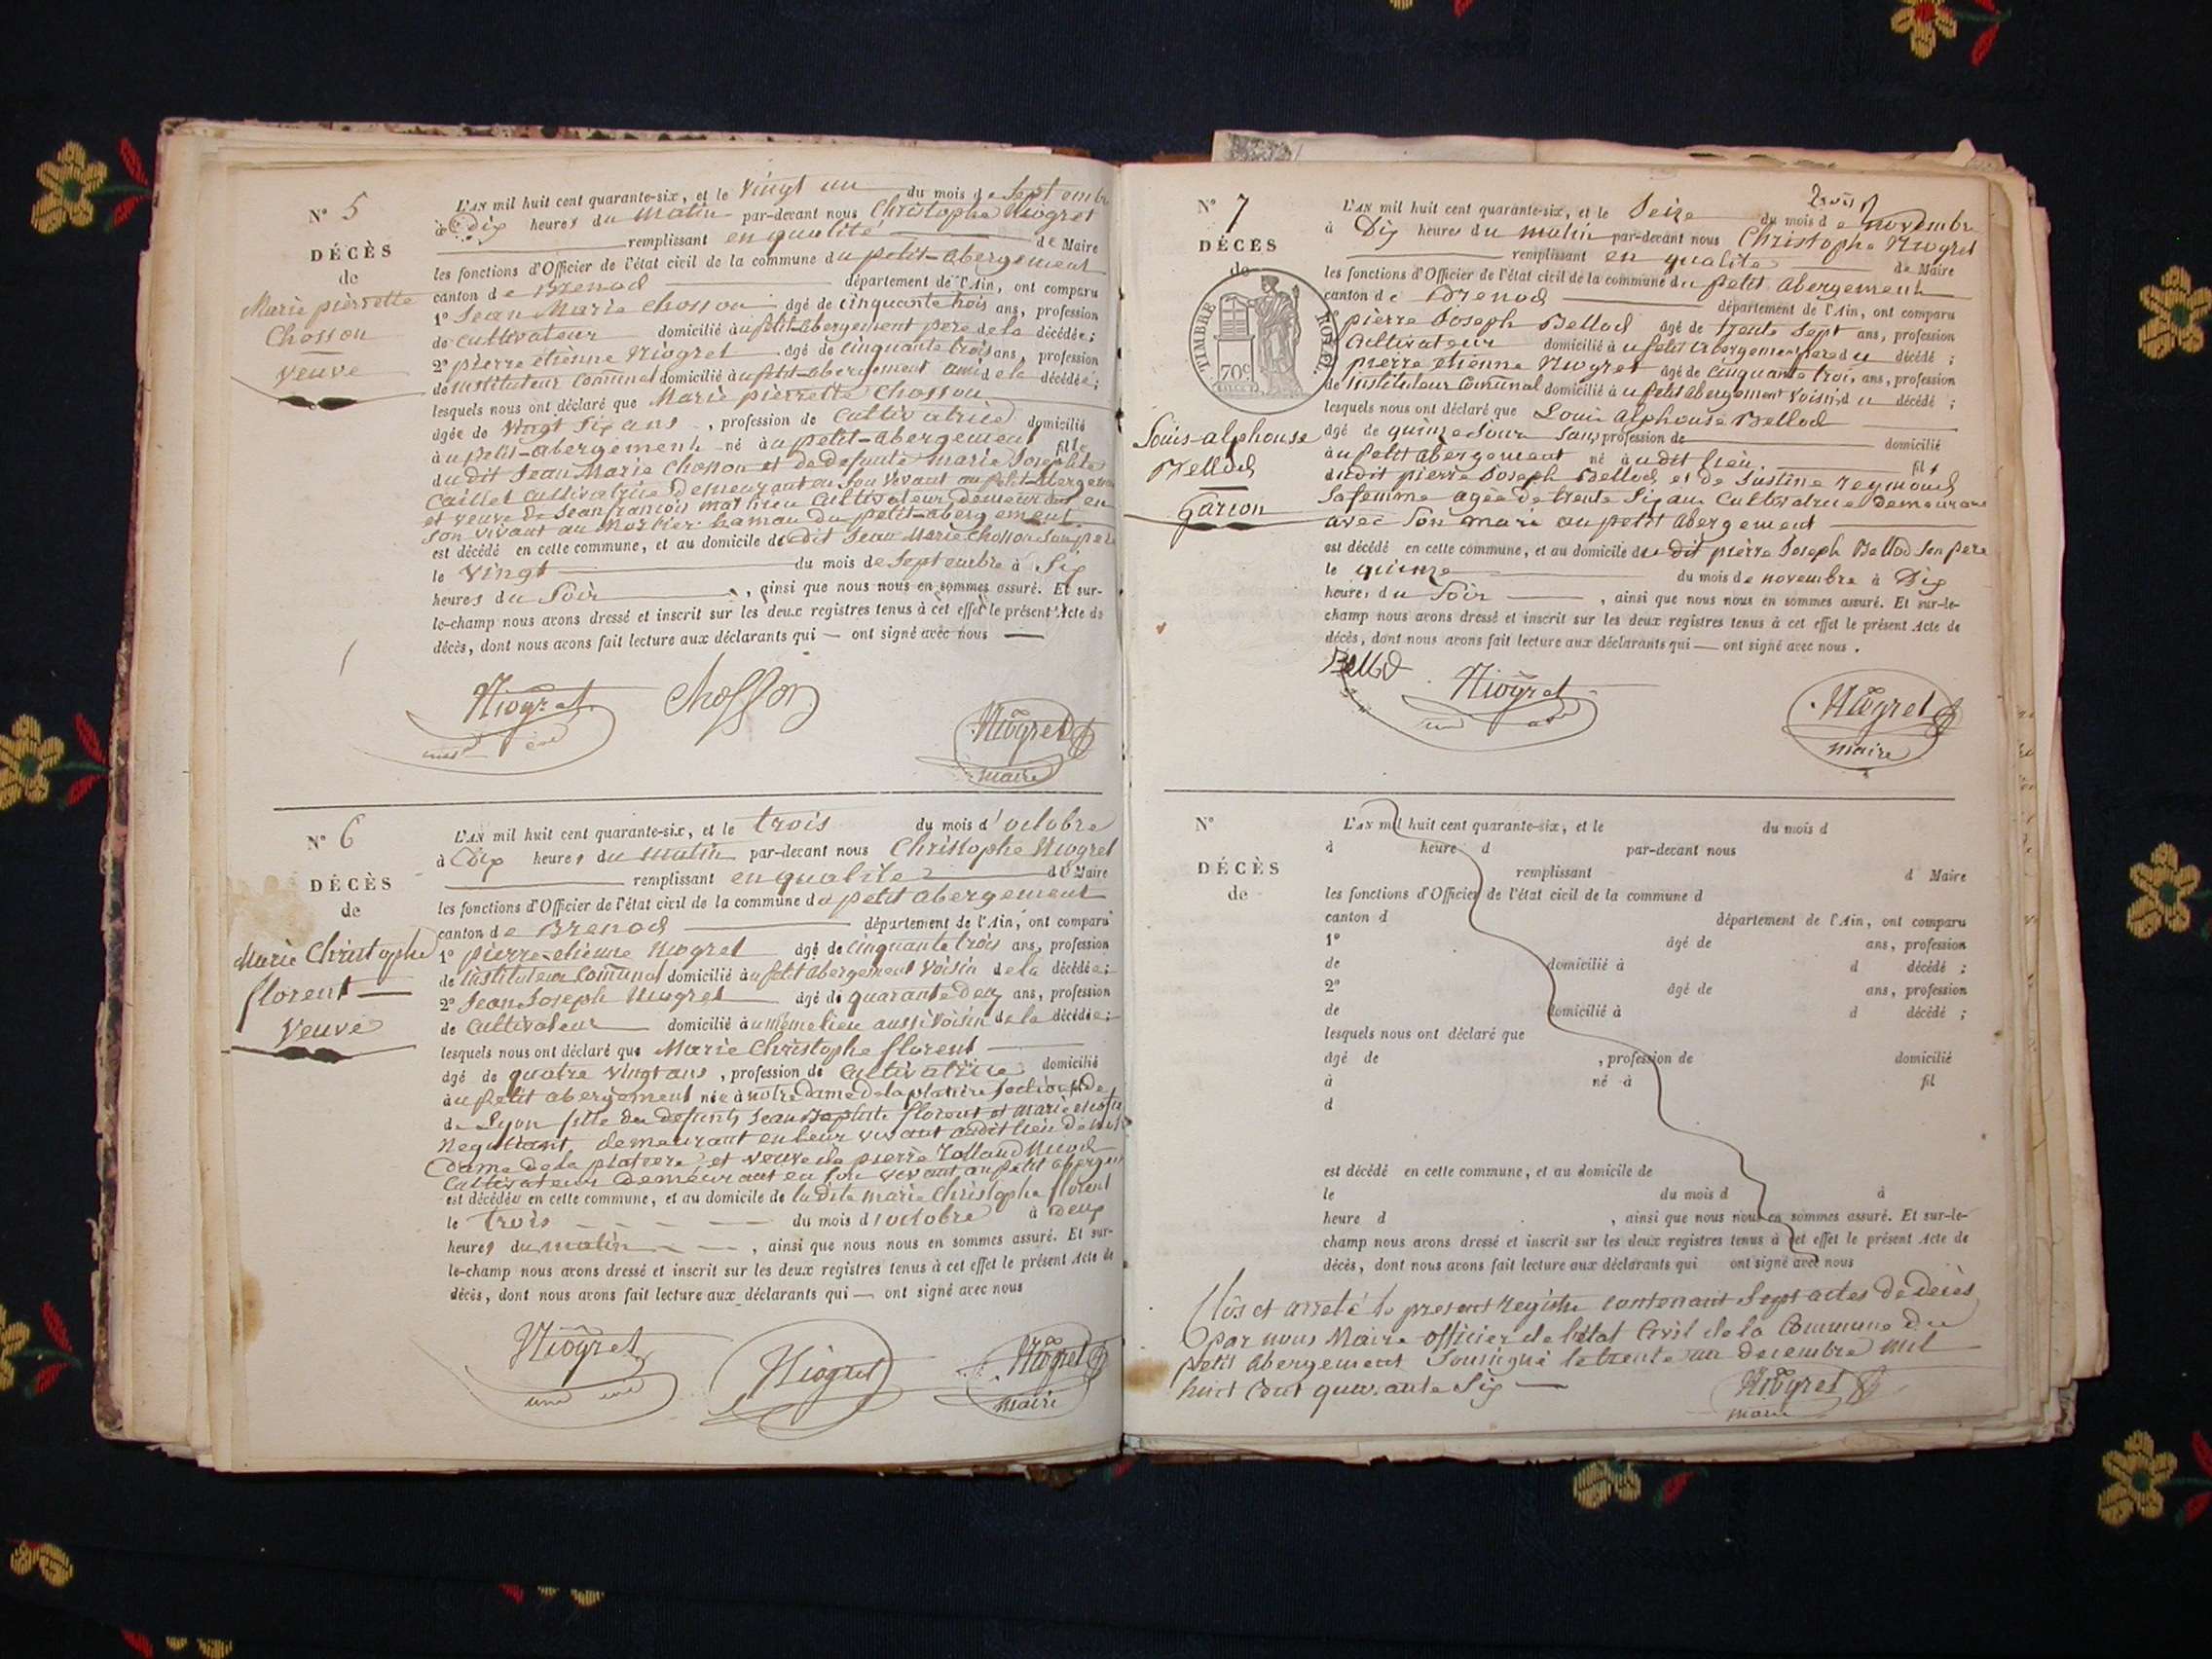 N° 5
DÉCÈS
de
Marie pierrette
Chosson
veuve
L'AN mil huit cent quarante-six, et le vingt un du mois de Septembre
à Dix heures du matin par-devant nous Christophe Niogret
remplissant en qualité de Maire
les fonctions d'Officier de l'état civil de la commune du petit-abergement
canton de Brenod département de l'Ain, ont comparu
1° Jean Marie Chosson âgé de cinquante trois ans, profession
de cultivateur domicilié au petit-abergement pere de la décédée ;
2° pierre etienne Niogret âgé de cinquante trois ans, profession
de instituteur communal domicilié au petit-abergement ami de la décédée ;
lesquels nous ont déclaré que Marie pierrette Chosson
âgée de vingt six ans, profession de cultivatrice domicilié
au petit-abergement né au petit-abergement fille
du dit Jean Marie Chosson et de defunte marie Josephte
Caillet cultivatrice demeurant en son vivant au petit-abergement
et veuve de Jean françois mathieu cultivateur demeurant en
son vivant au Mortier hamau du petit-abergement
est décédé en cette commune, et au domicile de dit Jean Marie Chosson son pere
le vingt du mois de Septembre à Six
heures du Soir, ainsi que nous nous en sommes assuré. Et sur-
le-champ nous avons dressé et inscrit sur les deux registres tenus à cet effet le présent Acte de
décès, dont nous avons fait lecture aux déclarants qui — ont signé avec nous —
Niogret Chosson Niogret
maire
N° 6
DÉCÈS
de
Marie Christophe
florent
Veuve
L'AN mil huit cent quarante-six, et le trois du mois d'octobre
à Dix heures du matin par-devant nous Christophe Niogret
remplissant en qualité de Maire
les fonctions d'Officier de l'état civil de la commune du petit abergement
canton de Brenod département de l'Ain, ont comparu
1° pierre-etienne Niogret âgé de cinquante trois ans, profession
de instituteur communal domicilié au petit abergement voisin de la décédée ;
2° Jean Joseph Niogret âgé de quarante deux ans, profession
de cultivateur domicilié au même lieu aussi voisin de la décédée ;
lesquels nous ont déclaré que Marie Christophe florent
âgé de quatre vingt ans, profession de cultivatrice domicilié
au petit abergement née à notre dame de la platiere
de Lyon fille de defunts Jean Baptiste florent et marie
Negotiant demeurant en leur vivant audit lieu de notre
Dame de la platiere et veuve de pierre Rolland
cultivateur demeurant en son vivant au petit abergement
est décédée en cette commune, et au domicile de la dite marie Christophe florent
le trois du mois d'octobre à deux
heures du matin, ainsi que nous nous en sommes assuré. Et sur-
le-champ nous avons dressé et inscrit sur les deux registres tenus à cet effet le présent Acte de
décès, dont nous avons fait lecture aux déclarants qui — ont signé avec nous
Niogret Niogret Niogret
maire
N° 7
DÉCÈS
de
TIMBRE ROYAL
70c
Louis-alphonse
Bellod
Garson
L'AN mil huit cent quarante-six, et le Seize du mois de novembre
à Dix heures du matin par-devant nous Christophe Niogret
remplissant en qualité de Maire
les fonctions d'Officier de l'état civil de la commune du petit abergement
canton de Brenod département de l'Ain, ont comparu
1° pierre Joseph Bellod âgé de trente Sept ans, profession
de Cultivateur domicilié au petit abergement pere du décédé ;
2° pierre etienne Niogret âgé de cinquante trois ans, profession
de instituteur communal domicilié au petit abergement voisin du décédé ;
lesquels nous ont déclaré que Louis alphonse Bellod
âgé de quinze Jours Sans profession de domicilié
au petit abergement né audit lieu fils
du dit pierre Joseph Bellod et de Justine reymond
Sa femme agée de trente Six ans Cultivatrice demeurant
avec Son mari au petit abergement
est décédé en cette commune, et au domicile du dit pierre Joseph Bellod Son pere
le quinze du mois de novembre à Dix
heures du Soir, ainsi que nous nous en sommes assuré. Et sur-le-
champ nous avons dressé et inscrit sur les deux registres tenus à cet effet le présent Acte de
décès, dont nous avons fait lecture aux déclarants qui — ont signé avec nous.
Bellod Niogret Niogret
maire
N°
DÉCÈS
de
L'AN mil huit cent quarante-six, et le du mois d
à heure d par-devant nous
remplissant d Maire
les fonctions d'Officier de l'état civil de la commune d
canton d département de l'Ain, ont comparu
1° âgé de ans, profession
de domicilié à d décédé ;
2° âgé de ans, profession
de domicilié à d décédé ;
lesquels nous ont déclaré que
âgé de , profession de domicilié
à né à fil
d
est décédé en cette commune, et au domicile de
le du mois d à
heure d , ainsi que nous nous en sommes assuré. Et sur-le-
champ nous avons dressé et inscrit sur les deux registres tenus à cet effet le présent Acte de
décès, dont nous avons fait lecture aux déclarants qui ont signé avec nous
Clos et arreté le present registre contenant Sept actes de décès
par nous Maire officier de l'état Civil de la Commune du
petit abergement Soussigné le trente un decembre mil
huit cent quarante Six —
Niogret
maire